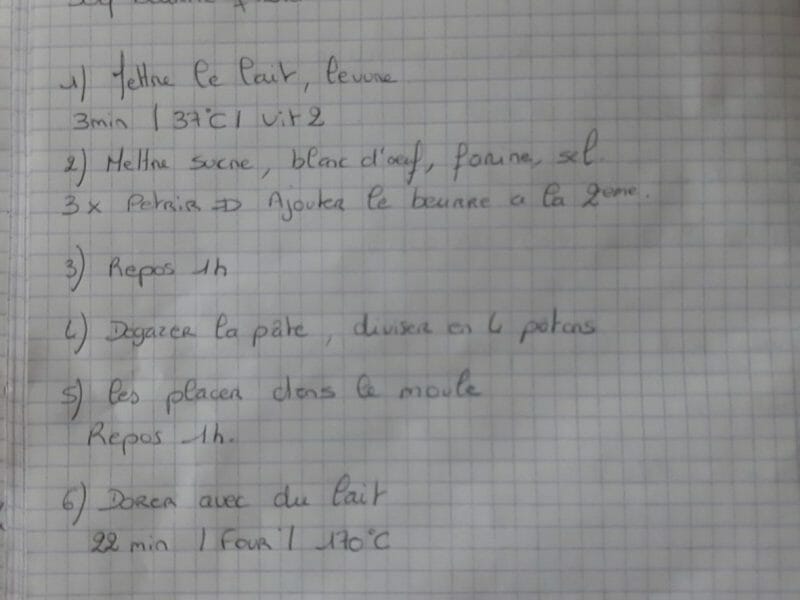 1) Mettre le lait, levure
3min / 37°C / vit 2
2) Mettre sucre, blanc d'oeuf, farine, sel.
3 x Petrir => Ajouter le beurre a la 2eme.
3) Repos 1h
4) Degazer la pâte, diviser en 4 patons
5) les placer dans le moule
Repos 1h.
6) Dorer avec du lait
22 min / Four / 170°C